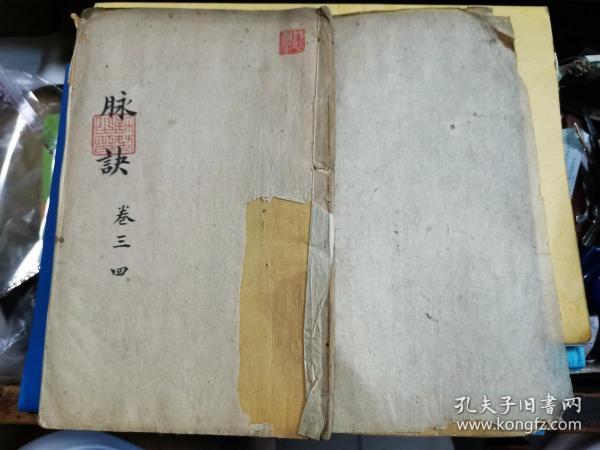 脉訣
卷三四
孔夫子旧书网
www.kongfz.com